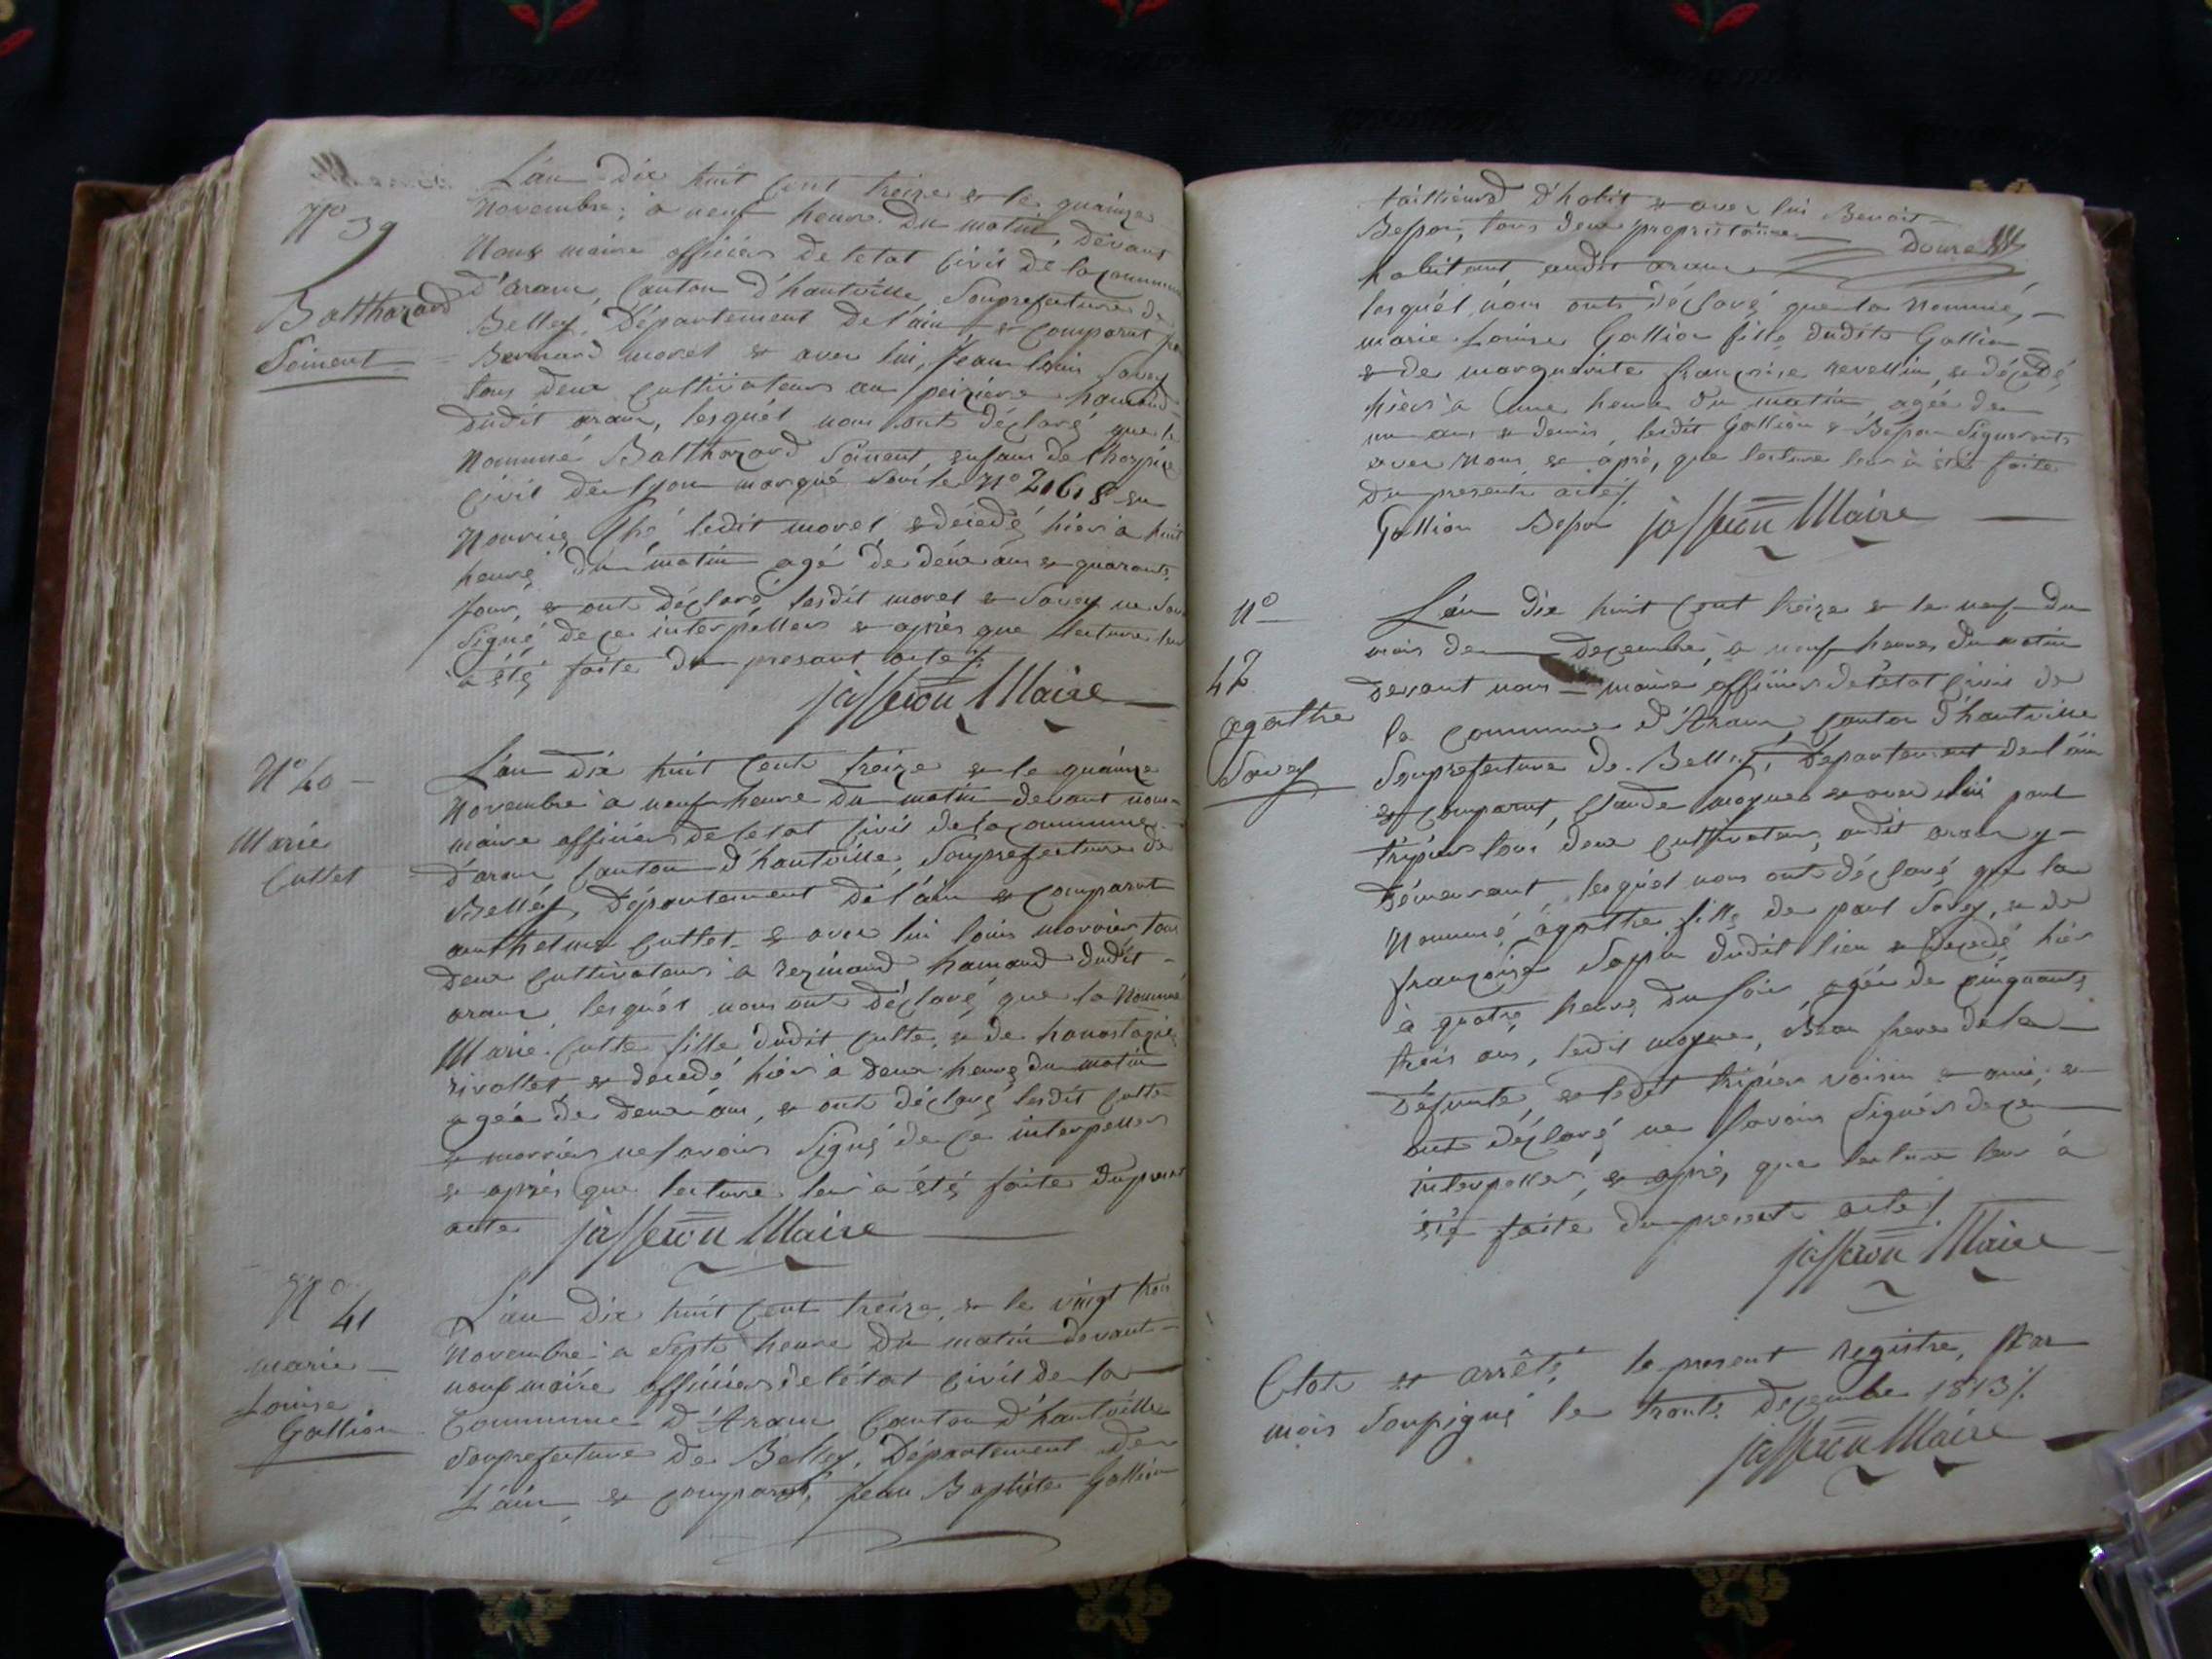 N° 39
Balthazard
Soinent
L'an dix huit Cent treize & le quainze
Novembre, à neuf heure du matin, devant
Nous maire officier de l'etat Civil de la commune
d'aranc, Canton d'hauteville, Souprefecture de
Belley, Département de l'ain & Comparut
Bernard morel & avec lui, Jean louis Savey
tous deux Cultivateurs au peizieres hamaud
dudit aranc, lesquél nous ont déclaré que le
Nommé Balthazard Soinent, enfans de l'hospice
Civil de Lyon marqué Sous le N° 2618 en
Nourice Ché ledit morel & décédé hier à huit
heure du matin agé de deux ans & quarante
Jour, & ont déclaré lesdit morel & Savey ne Sav
Signé de ce interpellers & après que lecture leur
a été faite du presant acte
jasseron Maire
N° 40
Marie
Cullet
L'an dix huit Cent treize & le quainze
Novembre à neuf heure du matin devant nous
maire officier de l'etat Civil de la Commune
d'aranc Canton d'hauteville, Souprefecture de
Belley, Département de l'ain & Comparut
anthelme Cullet & avec lui louis morrier tous
deux Cultivateurs à rezinand hamaud dudit
aranc, lesquél nous ont déclaré que la Nommé
Marie Culle fille dudit Culle, & de hanastazie
rivollet & décedé hier à deux heure du matin
agée de deux ans, & ont déclaré lesdit Culle
& morrier ne Savoir Signé de ce interpeller
& après que lecture leur a été faite du present
acte jasseron Maire
N° 41
marie
Louise
Gallion
L'an dix huit Cent treize, & le vingt trois
Novembre à Sept heure du matin devant
nous maire officier de l'état Civil de la
Commune d'Aranc Canton d'hauteville
Souprefecture de Belley, Département de
L'ain & Comparut, Jean Baptiste Gallion
taillieurs d'habit & avec lui Benoit
Besson, tous deux propriétaire Douze
habitant audit aranc
lesquél nous onts déclaré que la Nommé,
marie Louise Gallion fille dudits Gallion
& de marguerite françoise revellin & décédé
hier à une heure du matin, agée de
un ans & demis, lesdit Gallion & Besson Signeronts
avec Nous & après, que lecture leur à été faite
du presents actes
Gallion Beson jasseron Maire
N°
42
agathe
Savey
L'an dix huit Cent treize & le neuf du
mois de decembre, à neuf heures du matin
devant nous maire officier de l'état Civil de
la Commune d'Aranc, Canton d'hauteville
Souprefecture de Belley, Département de l'ain
& Comparut, Claude moyne & avec lui paul
tripier tous deux Cultivateurs, audit aranc y
démeurant, lesquél nous ont déclaré que la
Nommé agathe fille de paul Savey, & de
françoise Sappin dudit lieu & decedé hier
à quatre heure du Soir, agée de cinquante
trois ans, ledit moyne, Beau frere de la
défunte, & ledit tripier voisin & amis, &
ont déclaré ne Savoir Signér de ce
interpeller, & après, que lecture leur à
été faite du present acte
jasseron Maire
Clots & arrêté le present registre, par
mois Soupigné le trente decembre 1813
jasseron Maire